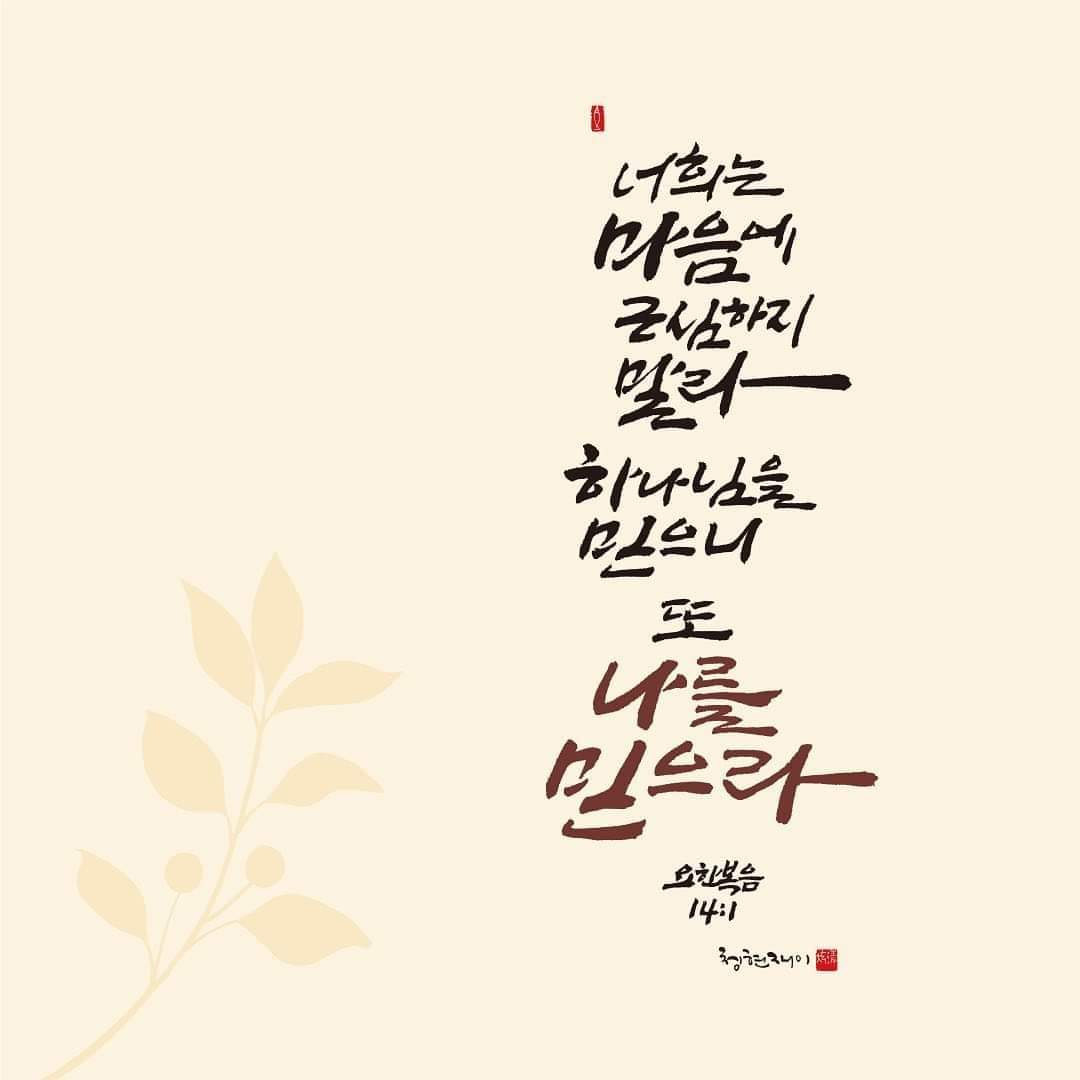 너희는
마음에
근심하지
말라
하나님을
믿으니
또
나를
믿으라
요한복음
14:1
청현재이